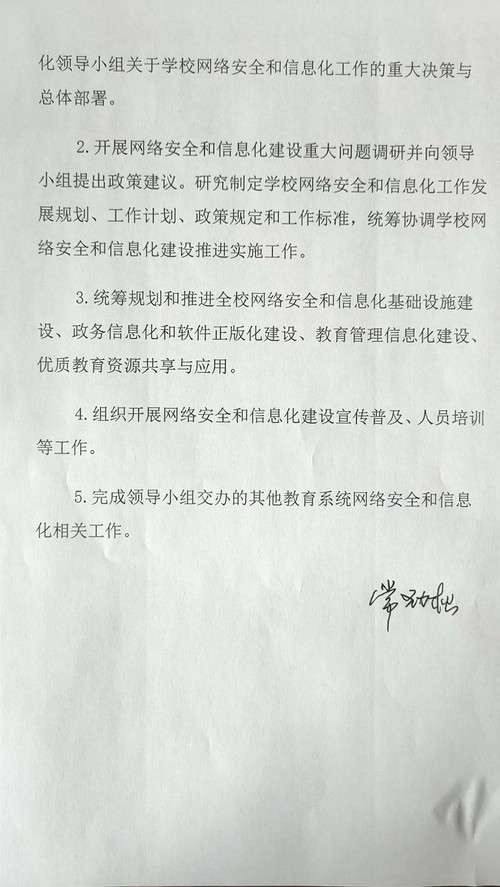 化领导小组关于学校网络安全和信息化工作的重大决策与
总体部署。
2.开展网络安全和信息化建设重大问题调研并向领导
小组提出政策建议。研究制定学校网络安全和信息化工作发
展规划、工作计划、政策规定和工作标准，统筹协调学校网
络安全和信息化建设推进实施工作。
3.统筹规划和推进全校网络安全和信息化基础设施建
设、政务信息化和软件正版化建设、教育管理信息化建设、
优质教育资源共享与应用。
4.组织开展网络安全和信息化建设宣传普及、人员培训
等工作。
5.完成领导小组交办的其他教育系统网络安全和信息
化相关工作。